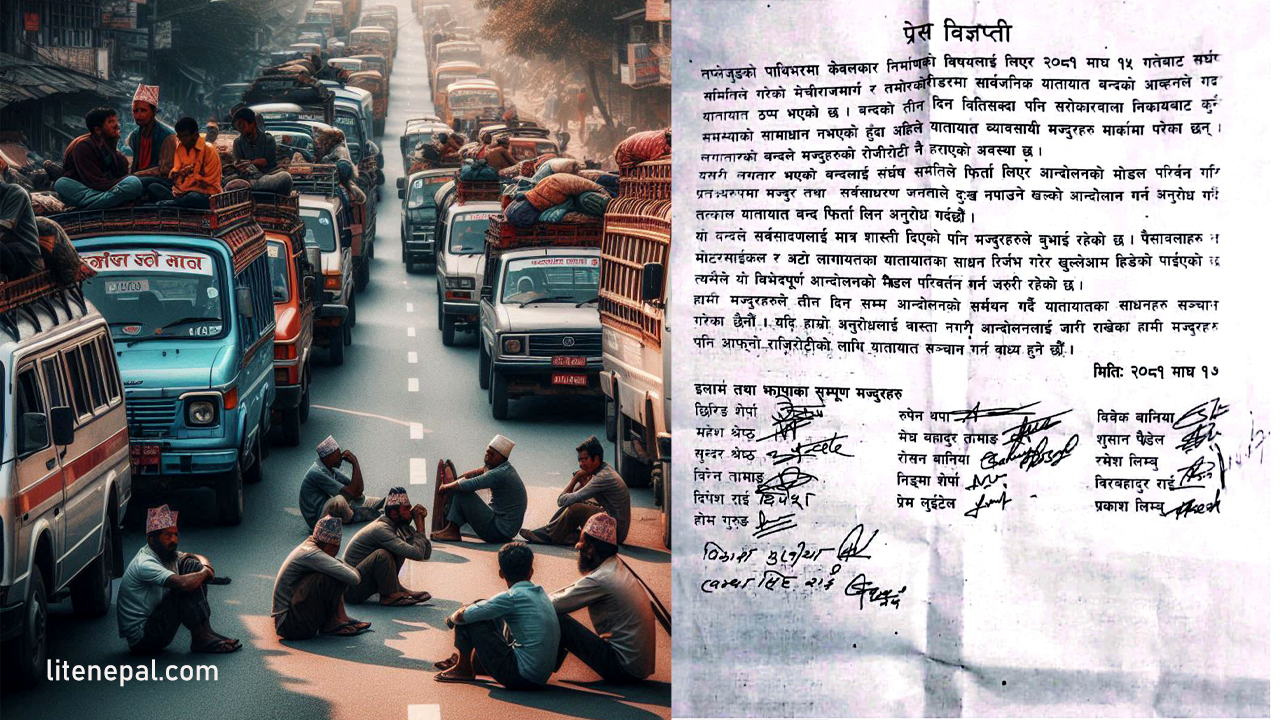 litenepal.com
प्रेस विज्ञप्ती
ताप्लेजुङको पाथिभरमा केवलकार निर्माणको विषयलाई लिएर २०८१ माघ १५ गतेबाट संघर्ष
समितिले गरेको मेचीराजमार्ग र तमोरकोरीडरमा सार्वजनिक यातायात बन्दको आव्हानले गर्दा
यातायात ठप्प भएको छ । बन्दको तीन दिन वितिसक्दा पनि सरोकारवाला निकायबाट कुनै
समस्याको सामाधान नभएको हुँदा अहिले यातायात व्यावसायी मज्दुरहरु मार्कामा परेका छन् ।
लगातारको बन्दले मज्दुहरुको रोजीरोटी नै हराएको अवस्था छ ।
यसरी लगतार भएको बन्दलाई संर्घष समितिले फिर्ता लिएर आन्दोलनको मोडल परिर्वन गरि
मज्दुर तथा सर्वसाधरण जनताले दुःख नपाउने खल्को आन्दोलान गर्न अनुरोध गर्दै
तत्काल यातायात बन्द फिर्ता लिन अनुरोध गर्दछौं ।
यो बन्दले सर्वसादणलाई मात्र शास्ती दिएको पनि मज्दुरहरुले बुझाई रहेको छ । पैसावलाहरु
मोटरसाईकल र अटो लागायतका यातायातका साधन रिर्जभ गरेर खुल्लेआम हिडेको पाईएको छ
त्यसैले यो विभेदपूर्ण आन्दोलनको मोडल परिवर्तन गर्न जरुरी रहेको छ ।
हामी मज्दुरहरुले तीन दिन सम्म आन्दोलनको सर्मथन गर्दै यातायातका साधनहरु सञ्चान
गरेका छैनौं । यदि हाम्रो अनुरोधलाई वास्ता नगरी आन्दोलनलाई जारी राखेका हामी मज्दुरहरु
पनि आफ्नो राजिरोटीको लागि यातायात सञ्चान गर्न बाध्य हुने छौं ।
मिति: २०८१ माघ १७
इलाम तथा झापाका सम्पूण मज्दुरहरु
छिरिङ शेर्पा रुपेन थपा विवेक बानिया
महेश श्रेष्ठ मेघ बहादुर तामाङ शुसान पौडेल
सुन्दर श्रेष्ठ रोसन बानिया रमेश लिम्बु
तामाङ निङ्मा शेर्पा विरबहादुर राई
दिपेश राई दिपेश प्रेम लुईटेल प्रकाश लिम्बु
होम गुरुङ